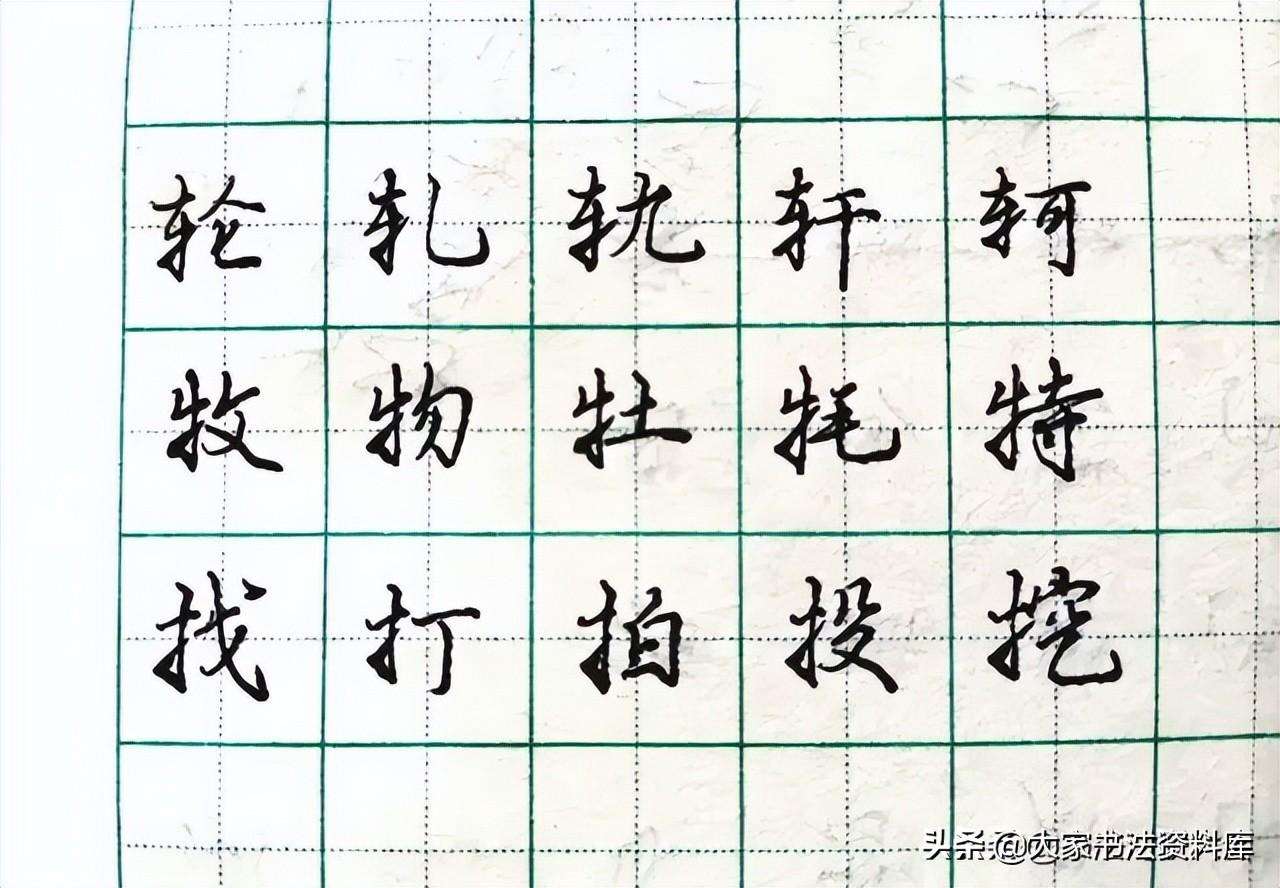 轧 轨 轩 轲
牧 物 牡 牦 特
找 打 拍 投 挖
头条 @大家书法资料库